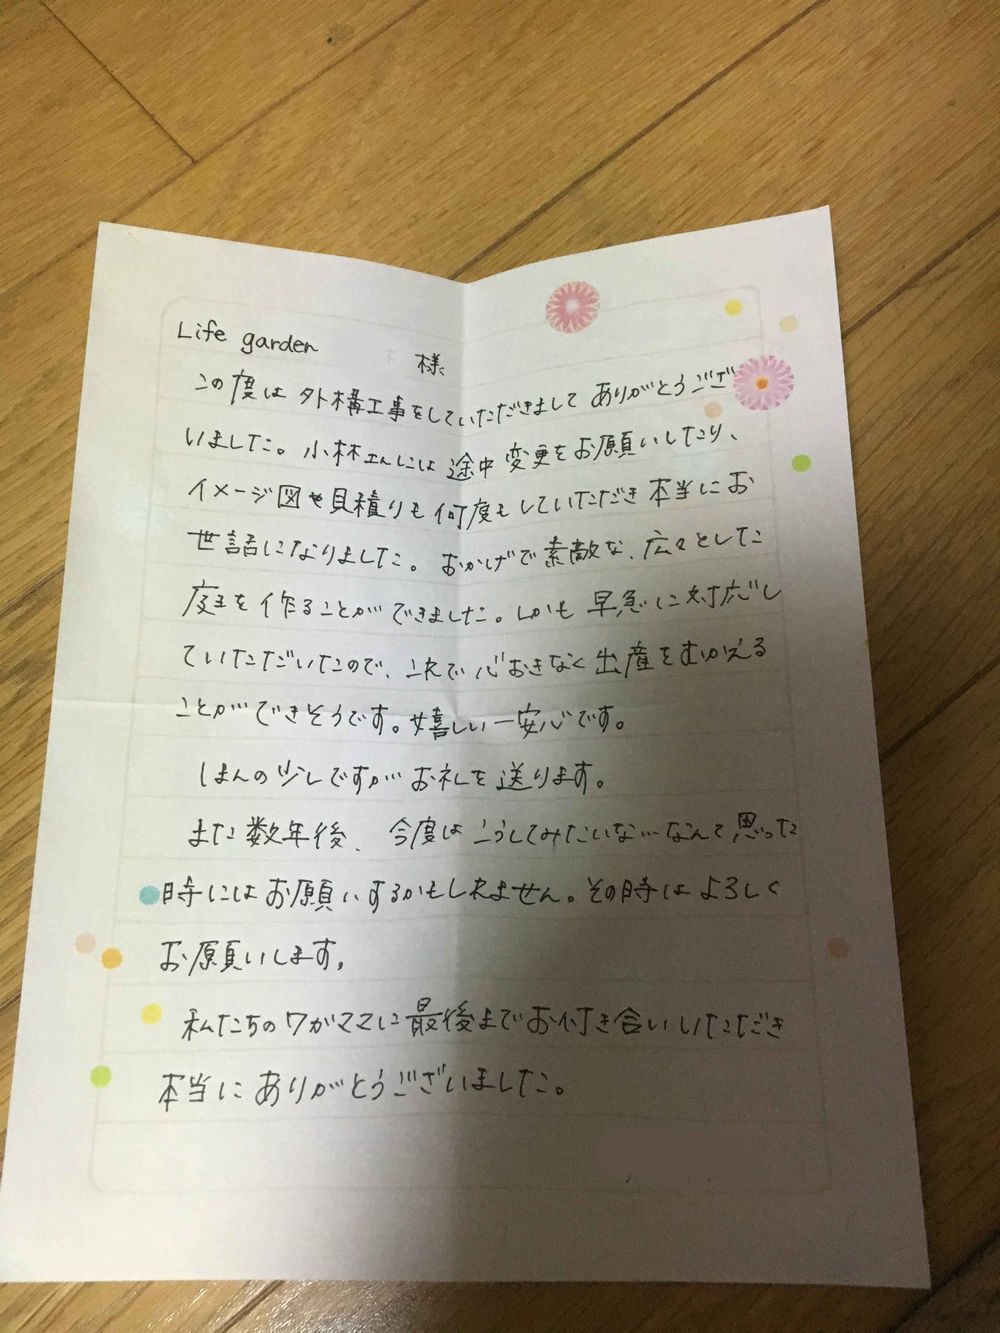 Life garden 様
この度は外構工事をしていただきまして ありがとうござ
いました。小林さんには途中変更をお願いしたり、
イメージ図や見積りも何度もしていただき本当にお
世話になりました。おかげで素敵な、広々とした
庭を作ることができました。しかも早急に対応し
ていただいたので、これで心おきなく出産をむかえる
ことができそうです。嬉しい一安心です。
ほんの少しですがお礼を送ります。
また数年後、今度はこうしてみたいな…なんて思った
時にはお願いするかもしれません。その時はよろしく
お願いします。
私たちのワガママに最後までお付き合いいただき
本当にありがとうございました。